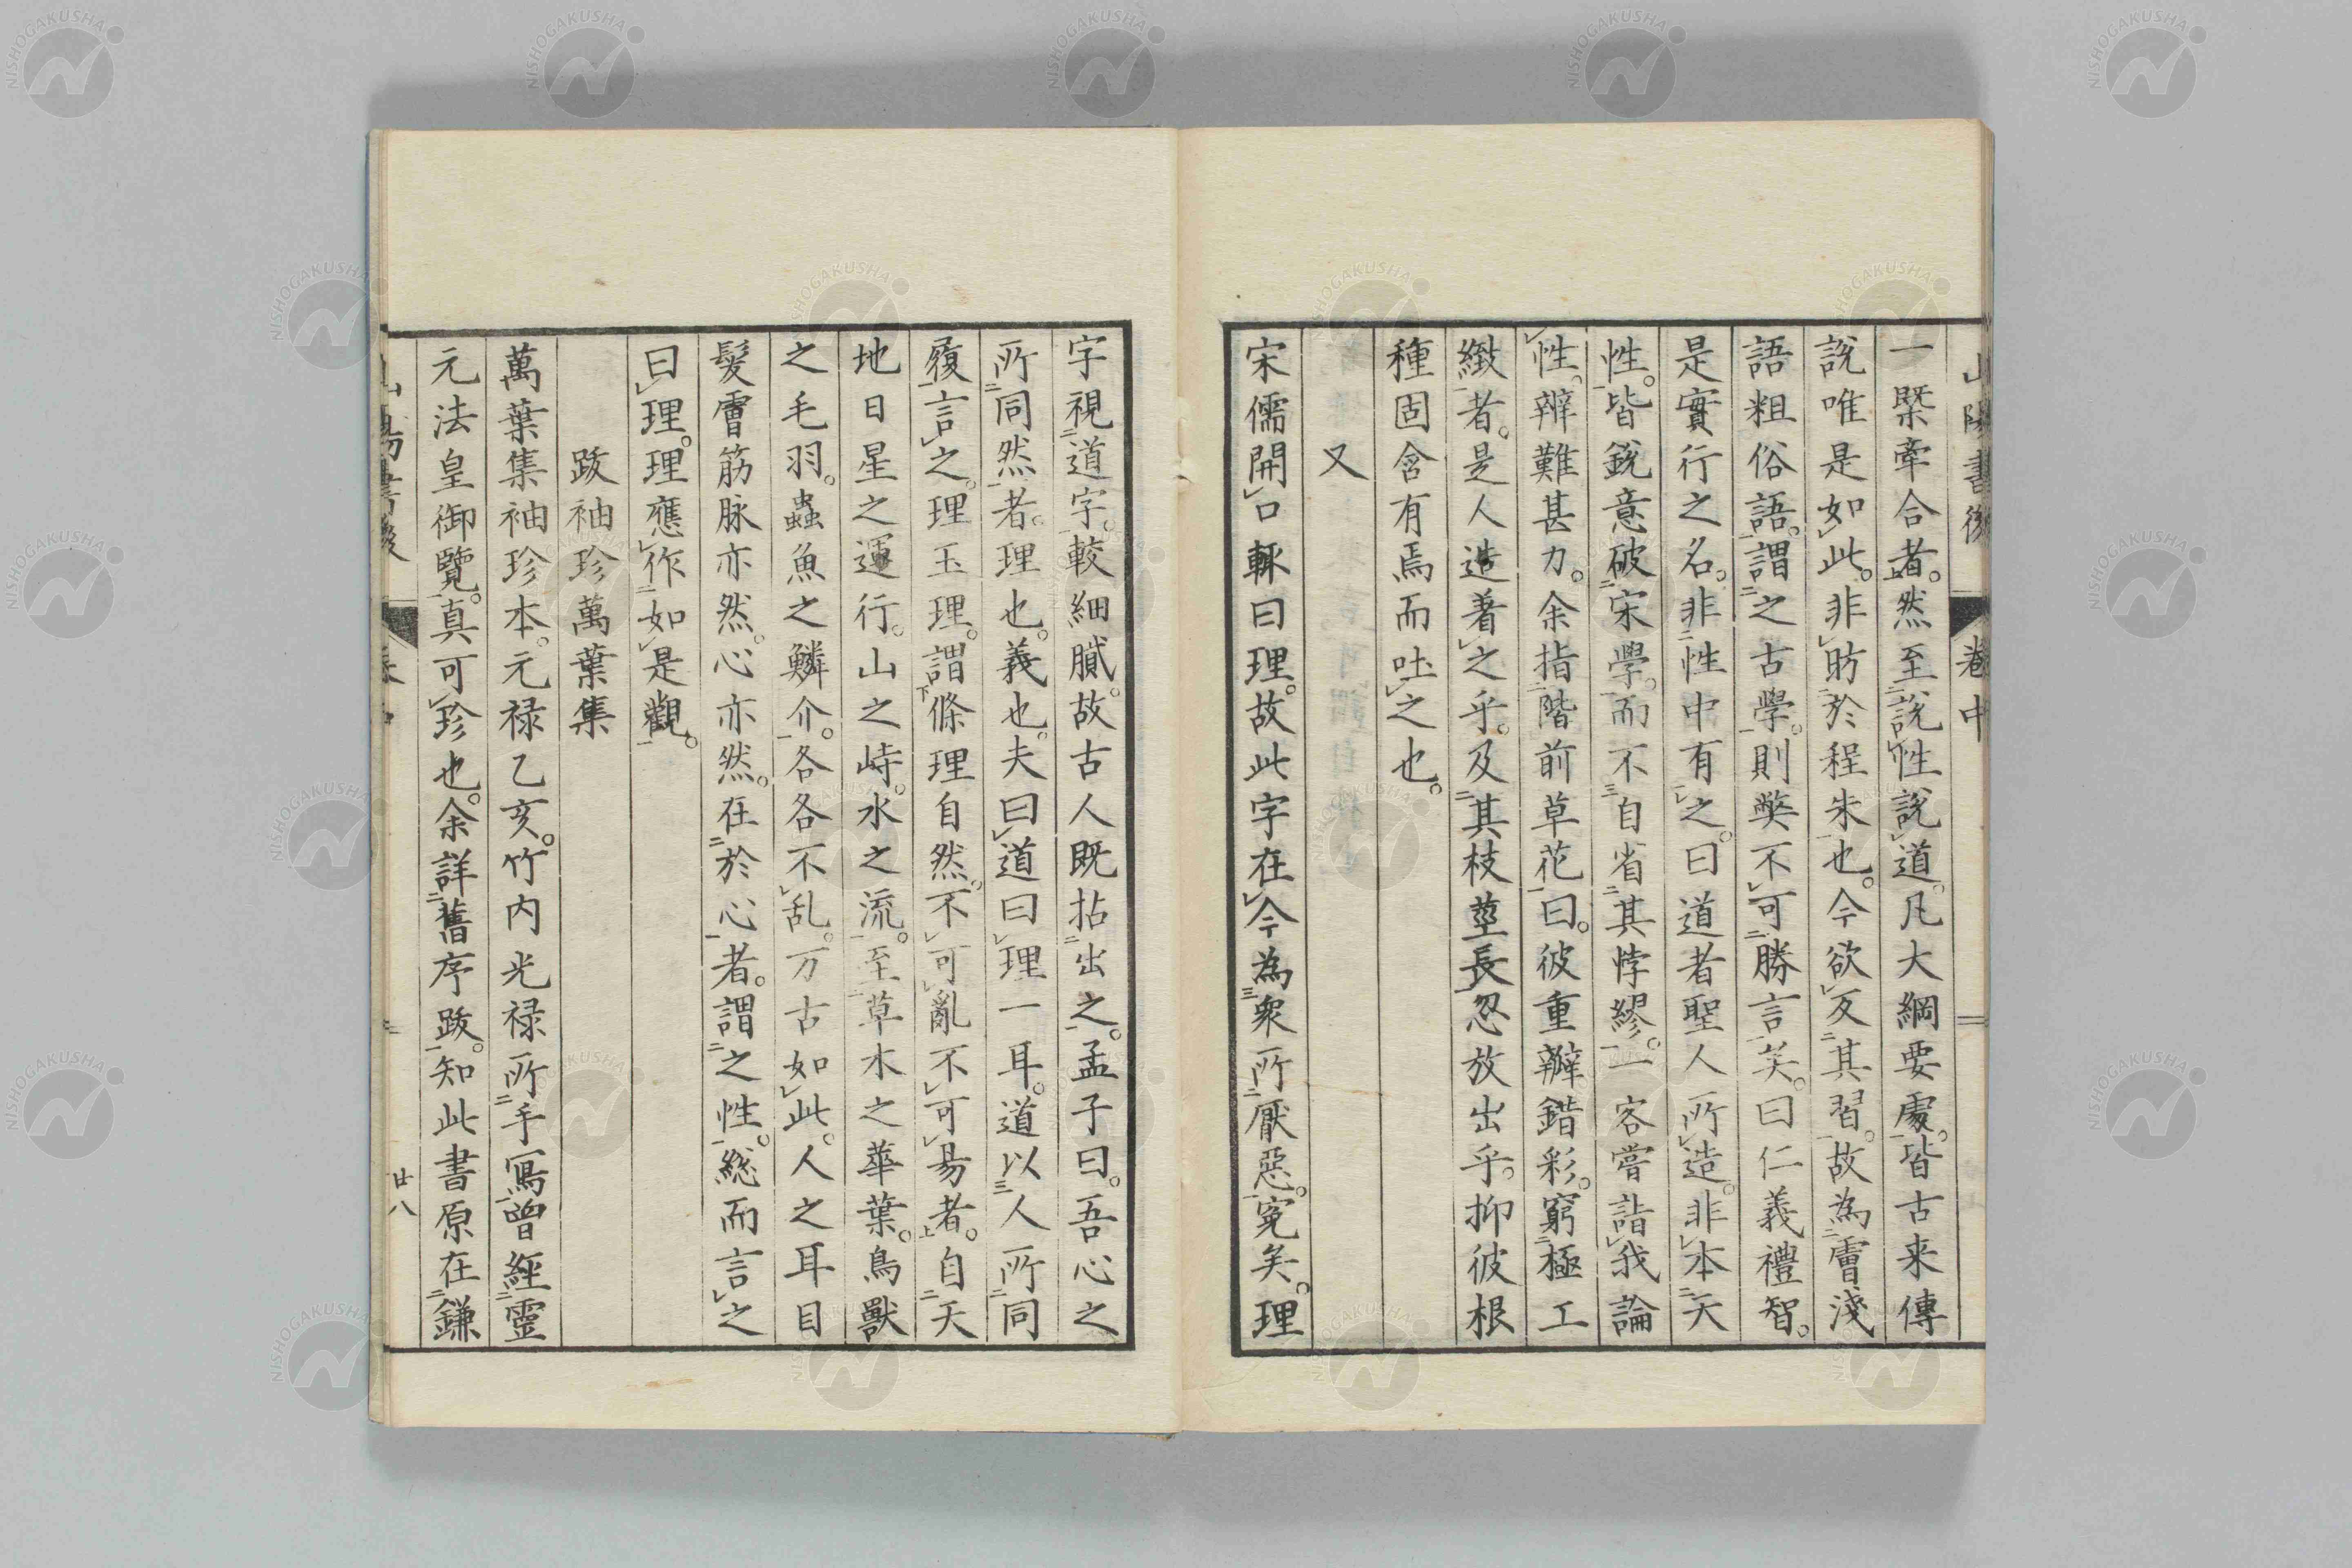 山陽書後 卷中
一槩牽合者。然至說性說道。凡大綱要處。皆古来傳
說唯是如此。非昉於程朱也。今欲反其習。故為膚淺
語粗俗語。謂之古學。則弊不可勝言矣。曰仁義禮智。
是實行之名。非性中有之。曰道者聖人所造。非本天
性。皆銳意破宋學。而不自省其悖繆。一客嘗詣我論
性。辨難甚力。余指階前草花曰。彼重瓣錯彩。窮極工
緻者。是人造著之乎。及其枝莖長忽放出乎。抑彼根
種固含有焉而吐之也。
又
宋儒開口輒曰理。故此字在今為衆所厭惡。冤矣。理
字視道字。較細膩。故古人既拈出之。孟子曰。吾心之
所同然者。理也。義也。夫曰道曰理一耳。道以人所同
履言之。理玉理。謂條理自然。不可亂不可易者。自天
地日星之運行。山之峙。水之流。至草木之華葉。鳥獸
之毛羽。蟲魚之鱗介。各各不乱。万古如此。人之耳目
髮膚筋脉亦然。心亦然。在於心者。謂之性。総而言之
曰理。理應作如是觀。
跋袖珍萬葉集
萬葉集袖珍本。元禄乙亥。竹内光禄所手寫曾經靈
元法皇御覽。真可珍也。余詳舊序跋。知此書原在鎌
廿八
NISHOGAKUSHA